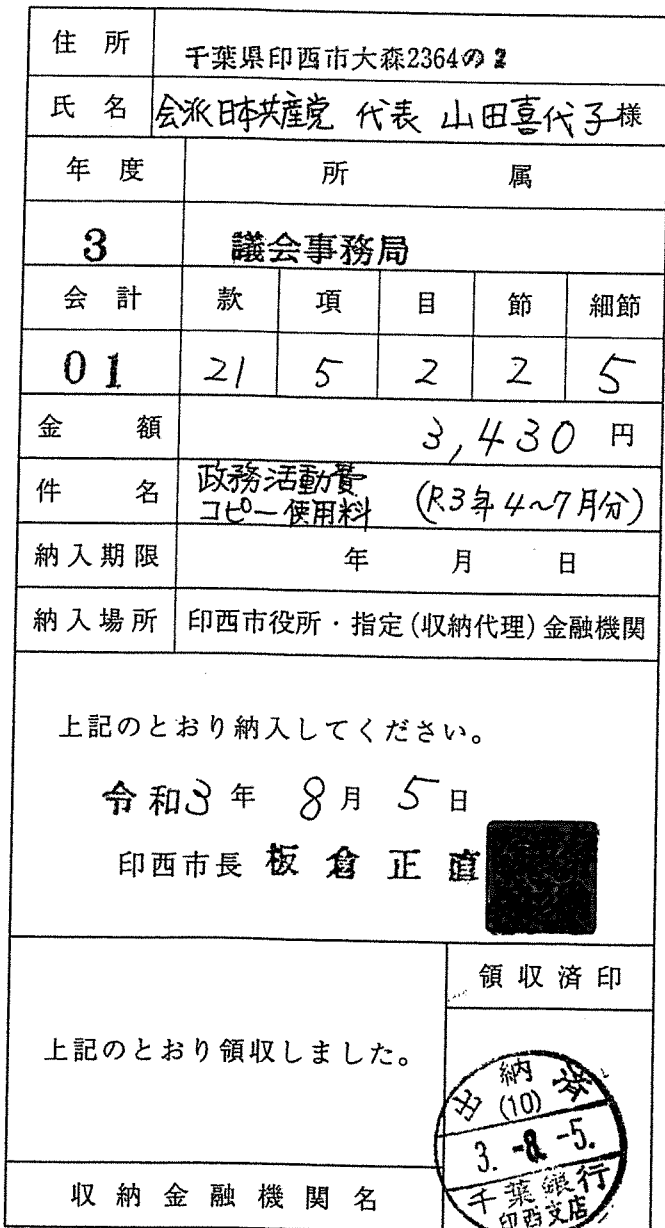 住所 千葉県印西市大森2364の2
氏名 会派日本共産党 代表 山田喜代子様
年度 所属
3 議会事務局
会計 款 項 目 節 細節
01 21 5 2 2 5
金額 3,430 円
件名 政務活動費
コピー使用料 (R3年4~7月分)
納入期限 年 月 日
納入場所 印西市役所・指定(収納代理)金融機関
上記のとおり納入してください。
令和3年 8月 5日
印西市長 板倉正直
領収済印
上記のとおり領収しました。
出納済
(10)
3.-8.-5.
千葉銀行
印西支店
収納金融機関名